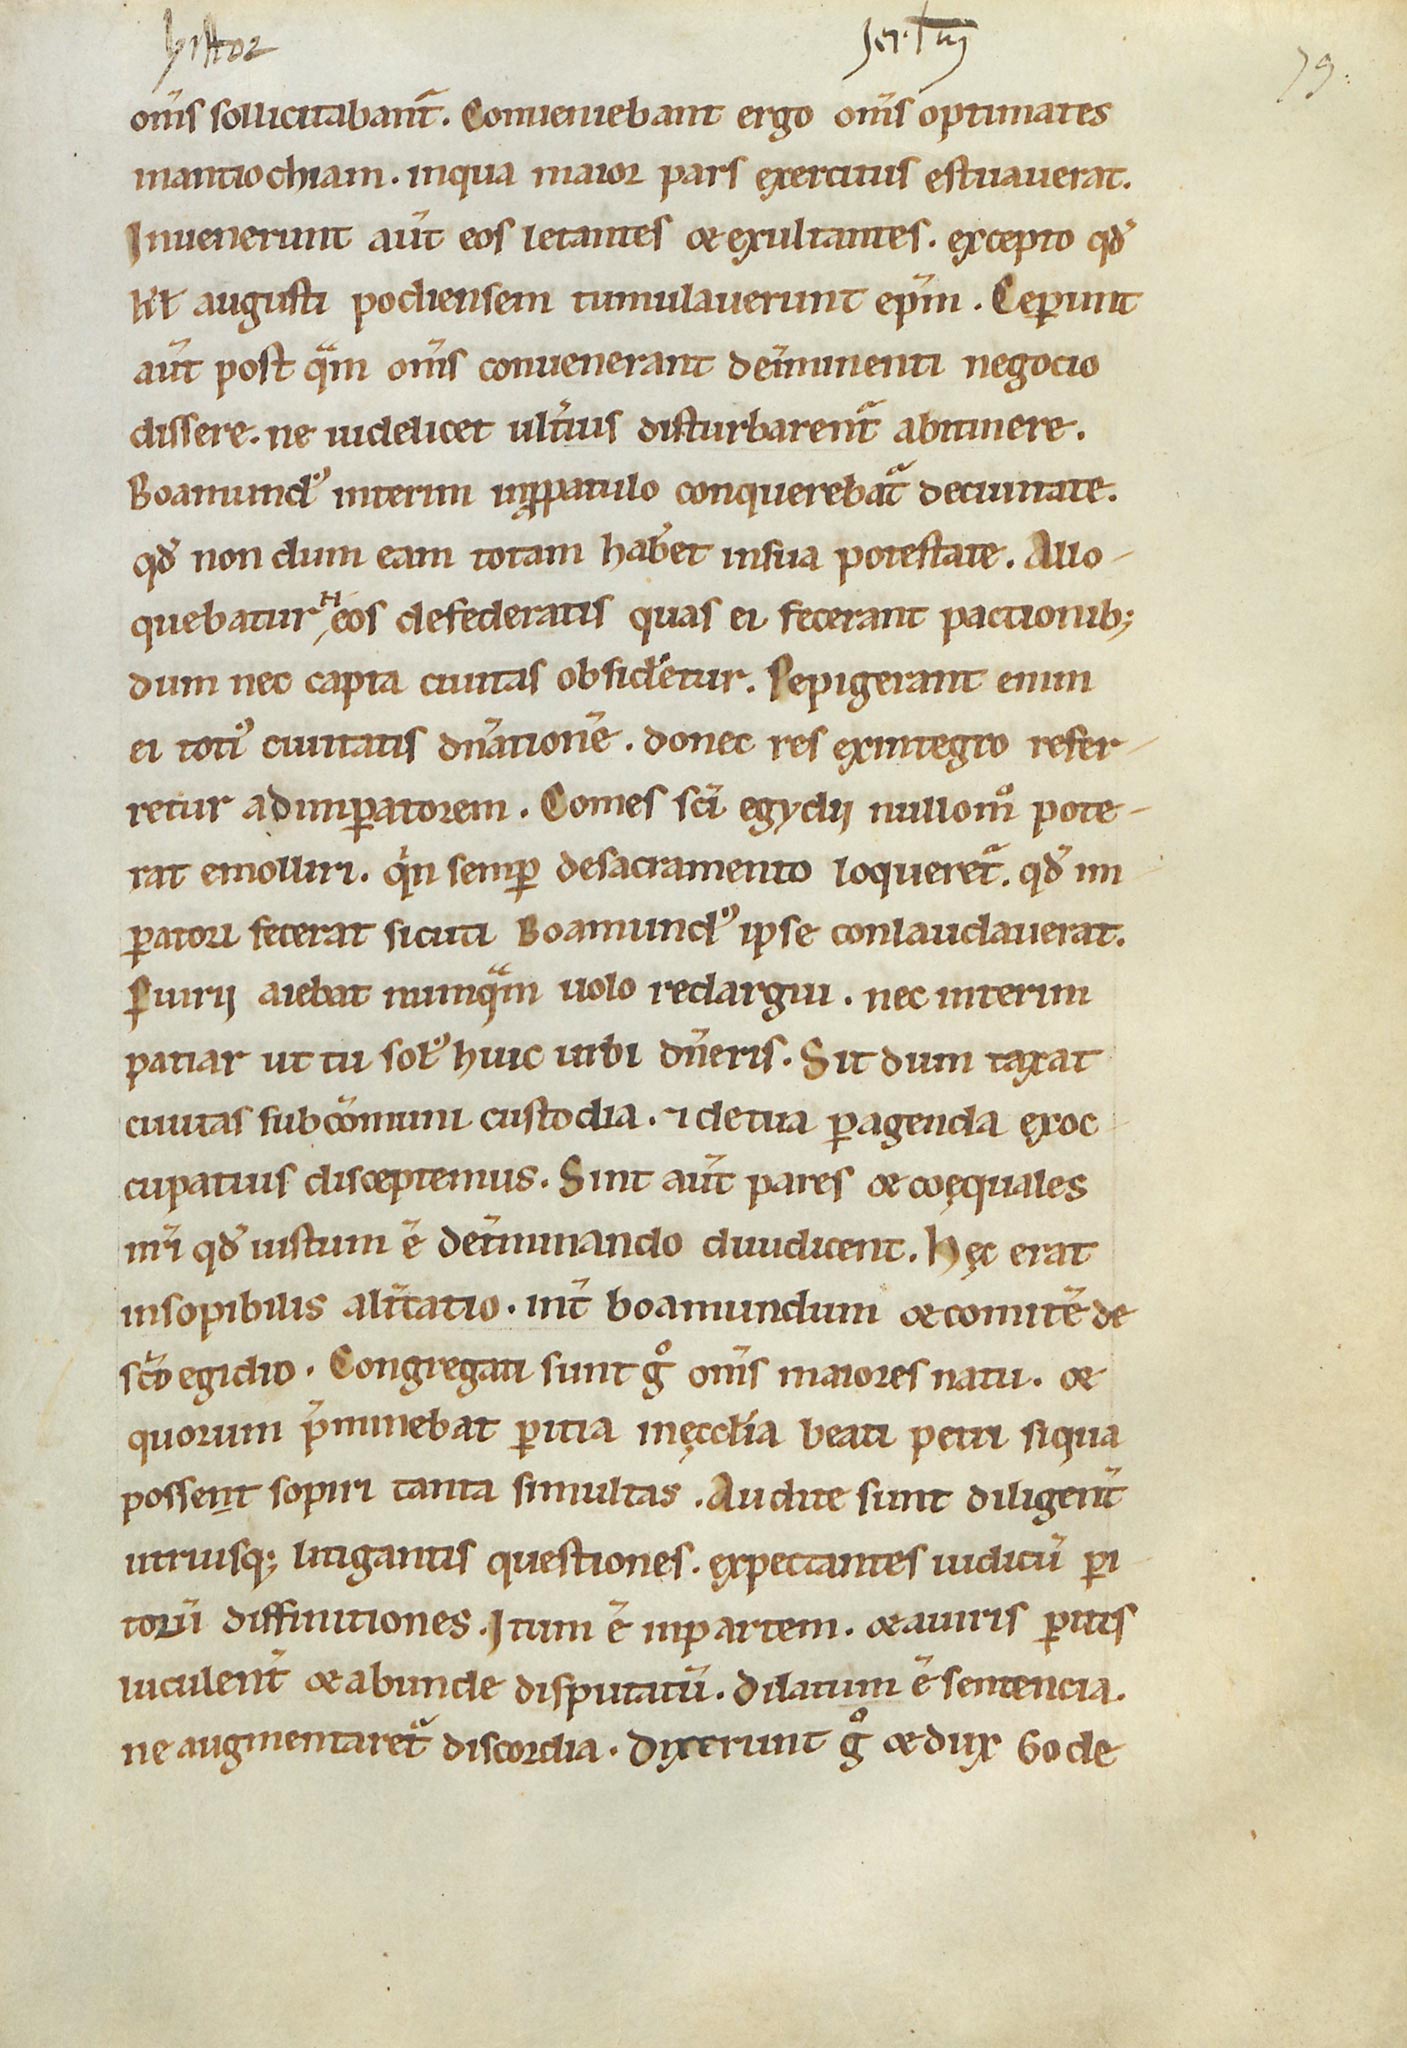 histor
ser. t uij
79.
oms̄ sollicitabant᷑. Conueniebant ergo oms̄ optimates
inantiochiam. inqua maior pars exercitus estuauerat.
Inuenerunt aut̄ eos letantes & exultantes. excepto qd̕
kl̄ augusti podiensem tumulauerunt ep̄m. Ceper̄unt
aut̄ post qᵃm oms̄ conuenerant deiminenti negocio
dissere. ne uidelicet ult̕ius disturbarent᷑ abitinere.
Boamund᷒ interim inꝓpatulo conquerebat᷑ deciuitate.
qd̕ non dum eam totam hab̕et insua potestate. Allo-
quebatur H eos defederatis quas ei fecerant pactionib;
dum nec capta ciuitas obsid̕etur. Pepigerant enim
ei toti᷒ ciuitatis dn̄atione᷒̄. donec res exintegro refer-
retur adimꝑatorem. Comes sc̄i egydij nullomº pote-
rat emolliri. qⁱn semꝑ desacramento loqueret᷑. qd̕ im
ꝑatori fecerat sicuti Boamund᷒ ipse conlaudauerat.
Ꝑiurij aiebat numqᵃm uolo redargui. nec interim
patiar ut tu sol᷒ huic urbi dn̄eris. Sit dum taxat
ciuitas subcōmuni custodia. ⁊ detua ꝑagenda exoc
cupatius disceptemus. Sint aut̄ pares & coęquales
nr̄i qd̕ iustum ē det̕minando diiudicent. Hęc erat
insopibilis alt̕catio. int̄ boamundum & comitē de
sc̄o egidio. Congregati sunt gº oms̄ maiores natu. &
quorum p̄minebat ꝑitia inęccl̄ia beati petri siqua
possent sopiri tanta simultas. Audite sunt diligent̄
utriusq; litigantis questiones. expectantes iudiciū ꝑi
torū diffinitiones. Itum ē inpartem. & auiris ꝑitis
luculent̄ & abunde disputatū. Dilatum ē sentencia.
ne augmentaret᷑ discordia. Dixerunt gº & dux Gode